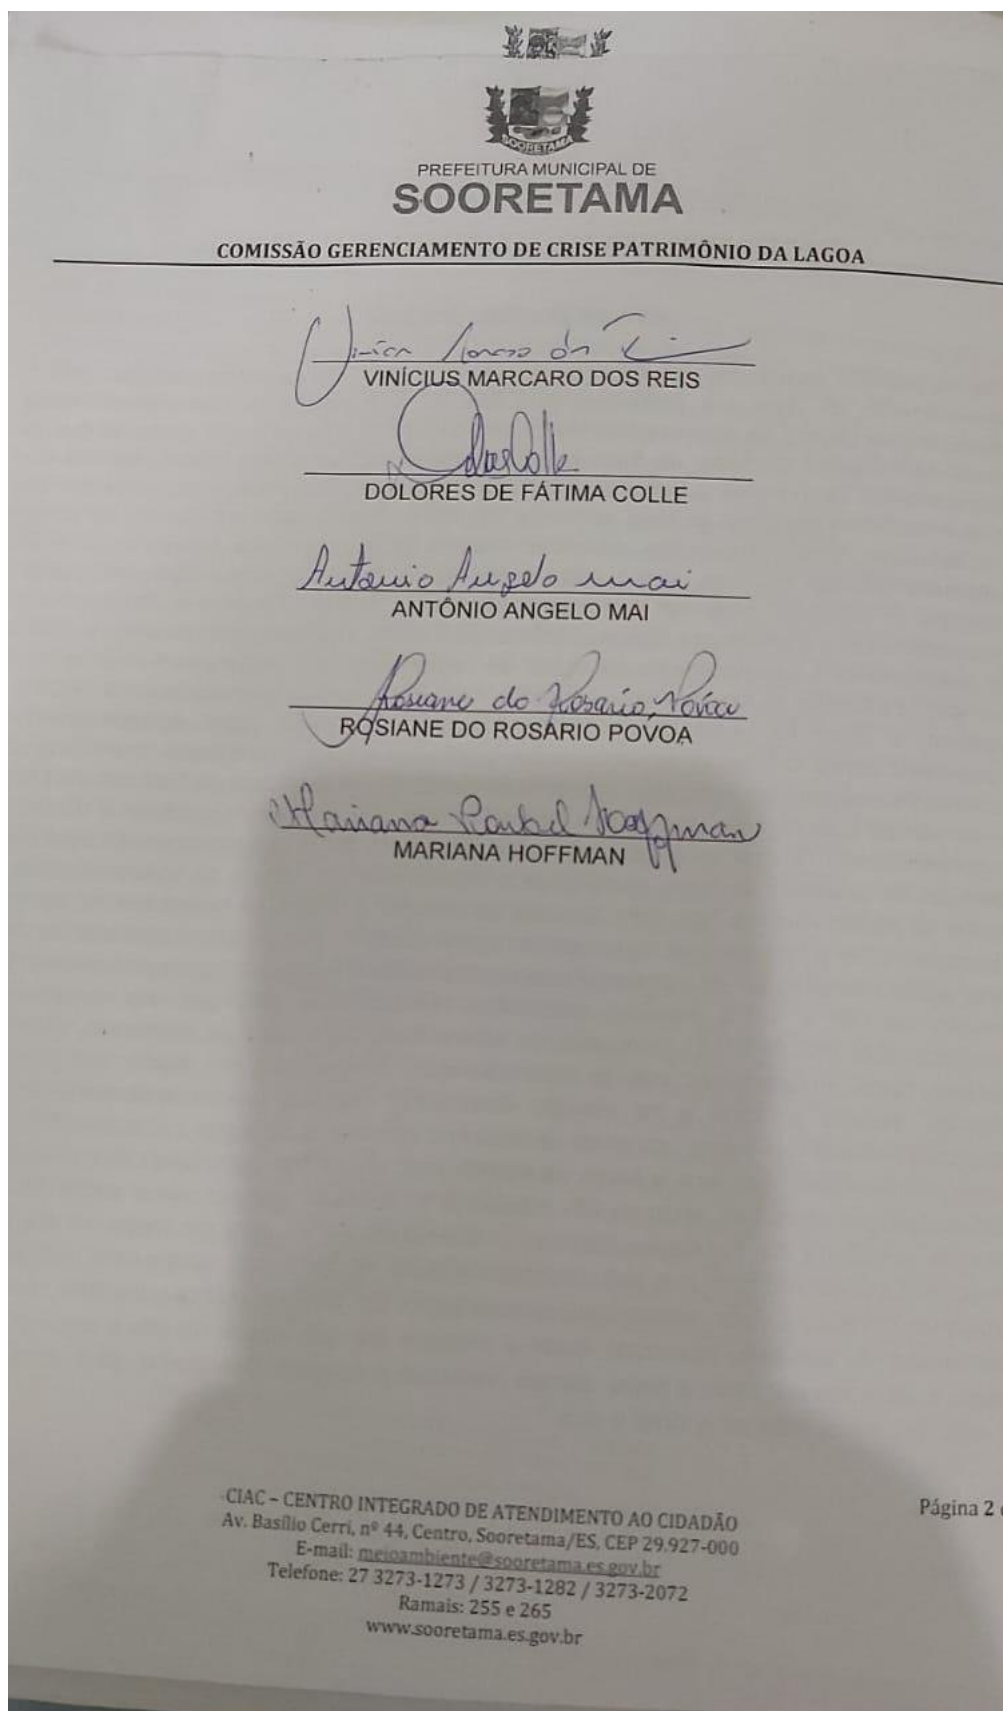 SOORETAMA
PREFEITURA MUNICIPAL DE
SOORETAMA
COMISSÃO GERENCIAMENTO DE CRISE PATRIMÔNIO DA LAGOA
VINÍCIUS MARCARO DOS REIS
DOLORES DE FÁTIMA COLLE
Antonio Angelo Mai
ANTÔNIO ANGELO MAI
Rosiane do Rosario Póvoa
ROSIANE DO ROSARIO POVOA
Mariana Hoffman
MARIANA HOFFMAN
CIAC – CENTRO INTEGRADO DE ATENDIMENTO AO CIDADÃO
Av. Basílio Cerri, nº 44, Centro, Sooretama/ES, CEP 29.927-000
E-mail: meioambiente@sooretama.es.gov.br
Telefone: 27 3273-1273 / 3273-1282 / 3273-2072
Ramais: 255 e 265
www.sooretama.es.gov.br
Página 2